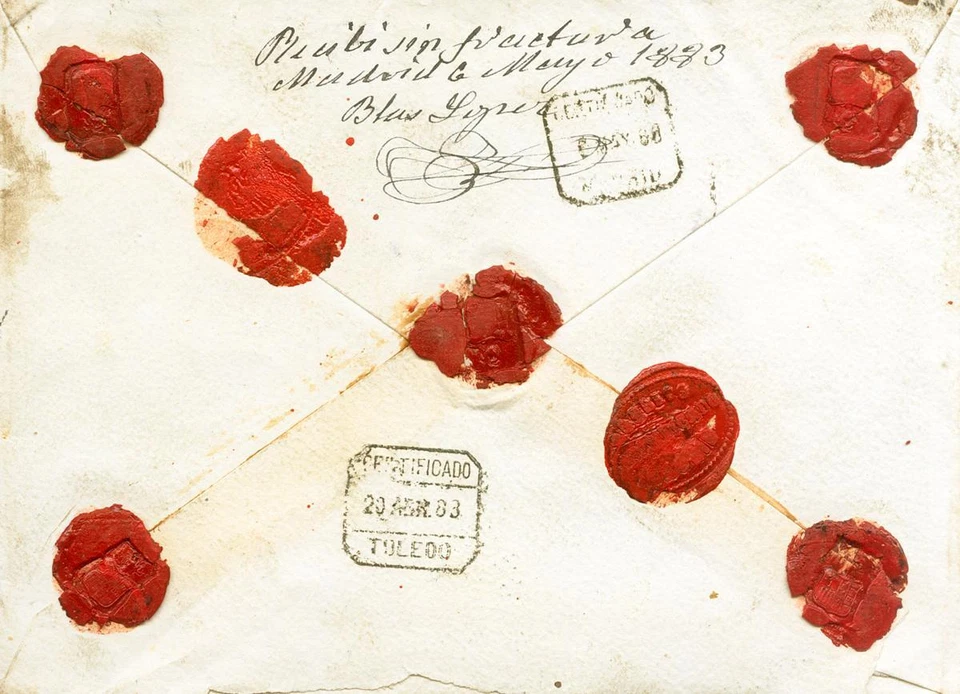 Recibi sin fractura
Madrid 6 Mayo 1883
Blas Lopez
CERTIFICADO
MAY. 83
MADRID
CERTIFICADO
29 ABR. 83
TOLEDO